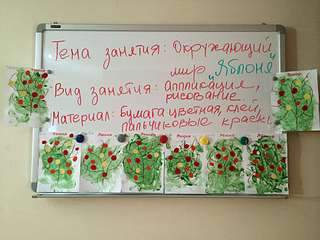 Тема занятия: Окружающий
мир „Яблоня"
Вид занятия: аппликация,
рисование
Материал: Бумага цветная, клей,
пальчиковые краски.